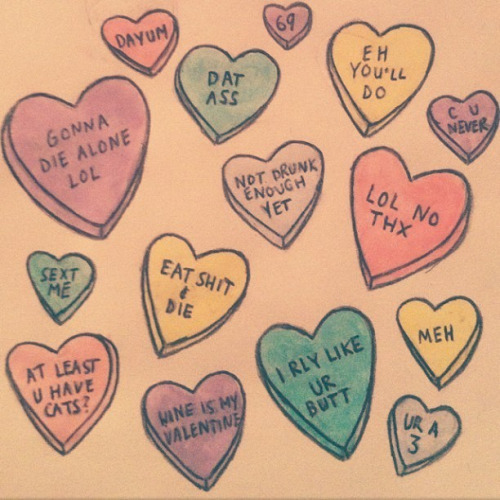 DAYUM
69
DAT
ASS
EH
YOU'LL
DO
C U
NEVER
GONNA
DIE ALONE
LOL
NOT DRUNK
ENOUGH
YET
LOL NO
THX
SEXT
ME
EAT SHIT
&
DIE
MEH
AT LEAST
U HAVE
CATS?
WINE IS MY
VALENTINE
I RLY LIKE
UR
BUTT
UR A
3